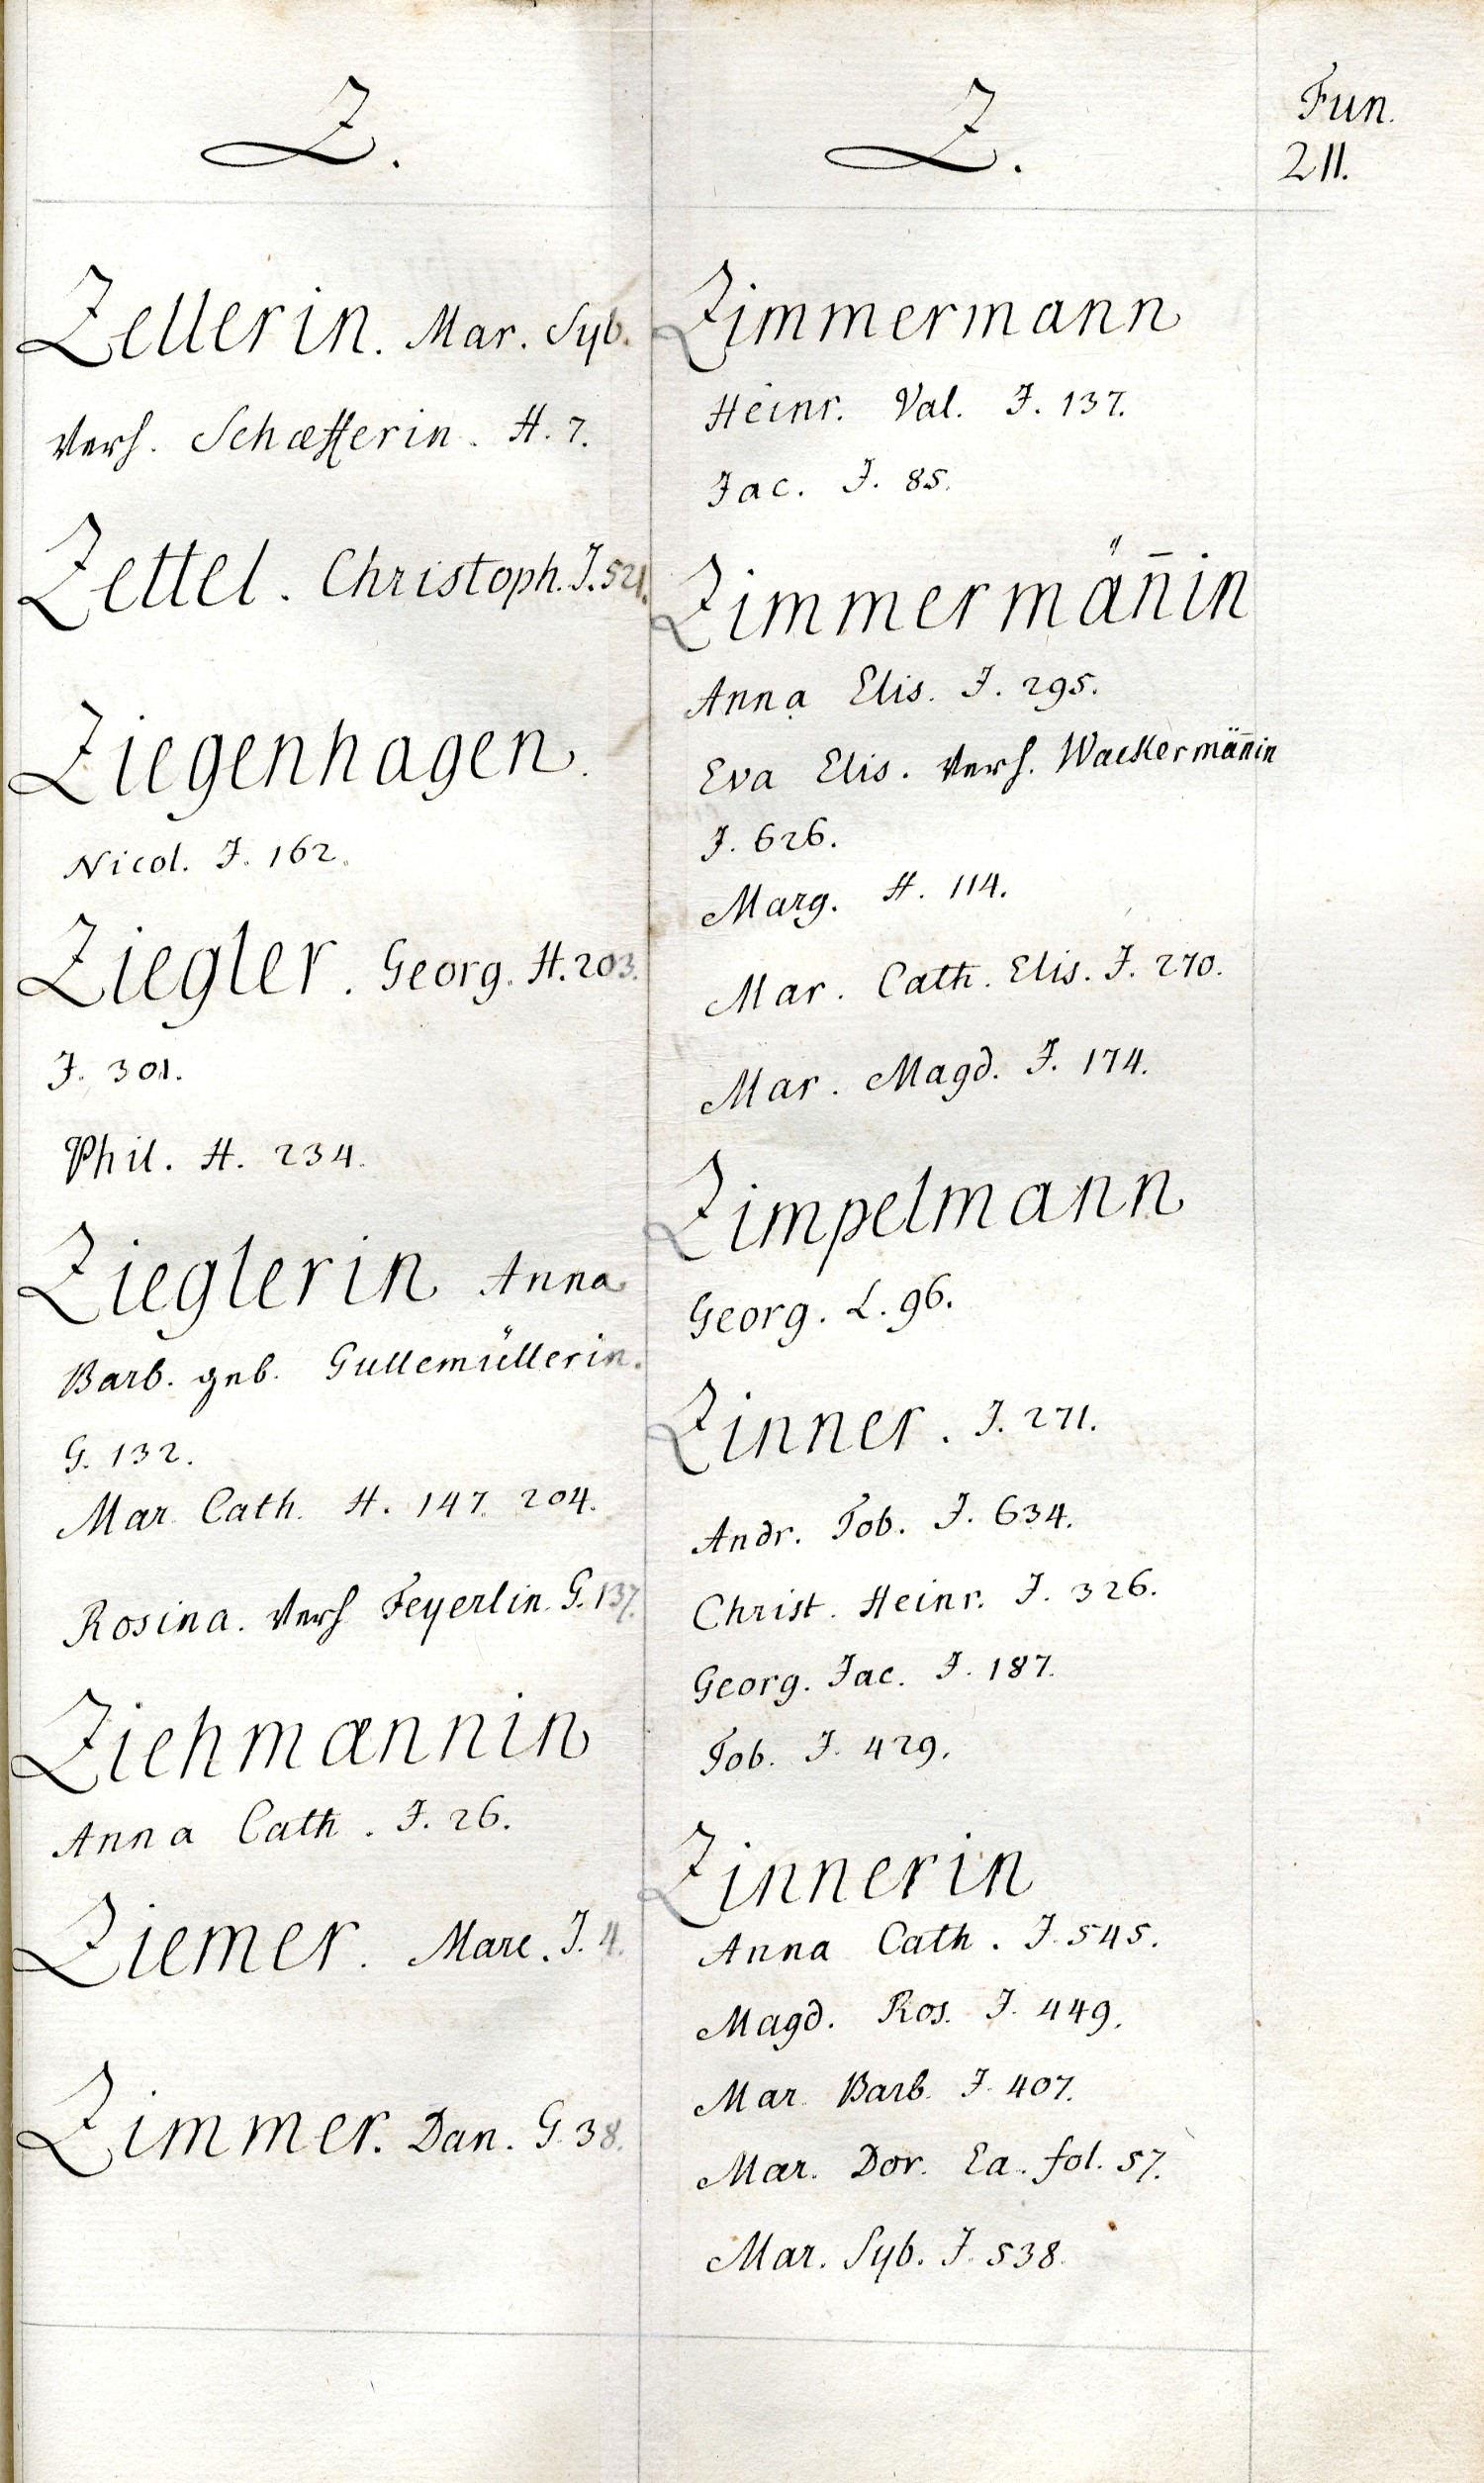 Z.
Zellerin. Mar. Syb.
verh. Schæfferin. H. 7.
Zettel. Christoph. J. 521.
Ziegenhagen.
Nicol. J. 162.
Ziegler. Georg. H. 203.
J. 301.
Phil. H. 234.
Zieglerin Anna
Barb. geb. Gullemüllerin.
G. 132.
Mar. Cath. H. 147. 204.
Rosina. verh Feyerlin. G. 137.
Ziehmænnin
Anna Cath. J. 26.
Ziemer. Marc. J. 4.
Zimmer. Dan. G. 38.
Z.
Zimmermann
Heinr. Val. J. 137.
Jac. J. 85.
Zimmermän̄in
Anna Elis. J. 295.
Eva Elis. verh. Wackermän̄in
J. 626.
Marg. H. 114.
Mar. Cath. Elis. J. 270.
Mar. Magd. J. 174.
Zimpelmann
Georg. L. 96.
Zinner. J. 271.
Andr. Tob. J. 634.
Christ. Heinr. J. 326.
Georg. Jac. J. 187.
Tob. J. 429.
Zinnerin
Anna Cath. J. 545.
Magd. Ros. J. 449.
Mar. Barb. J. 407.
Mar. Dor. Ea. fol. 57.
Mar. Syb. J. 538.
Fun.
211.